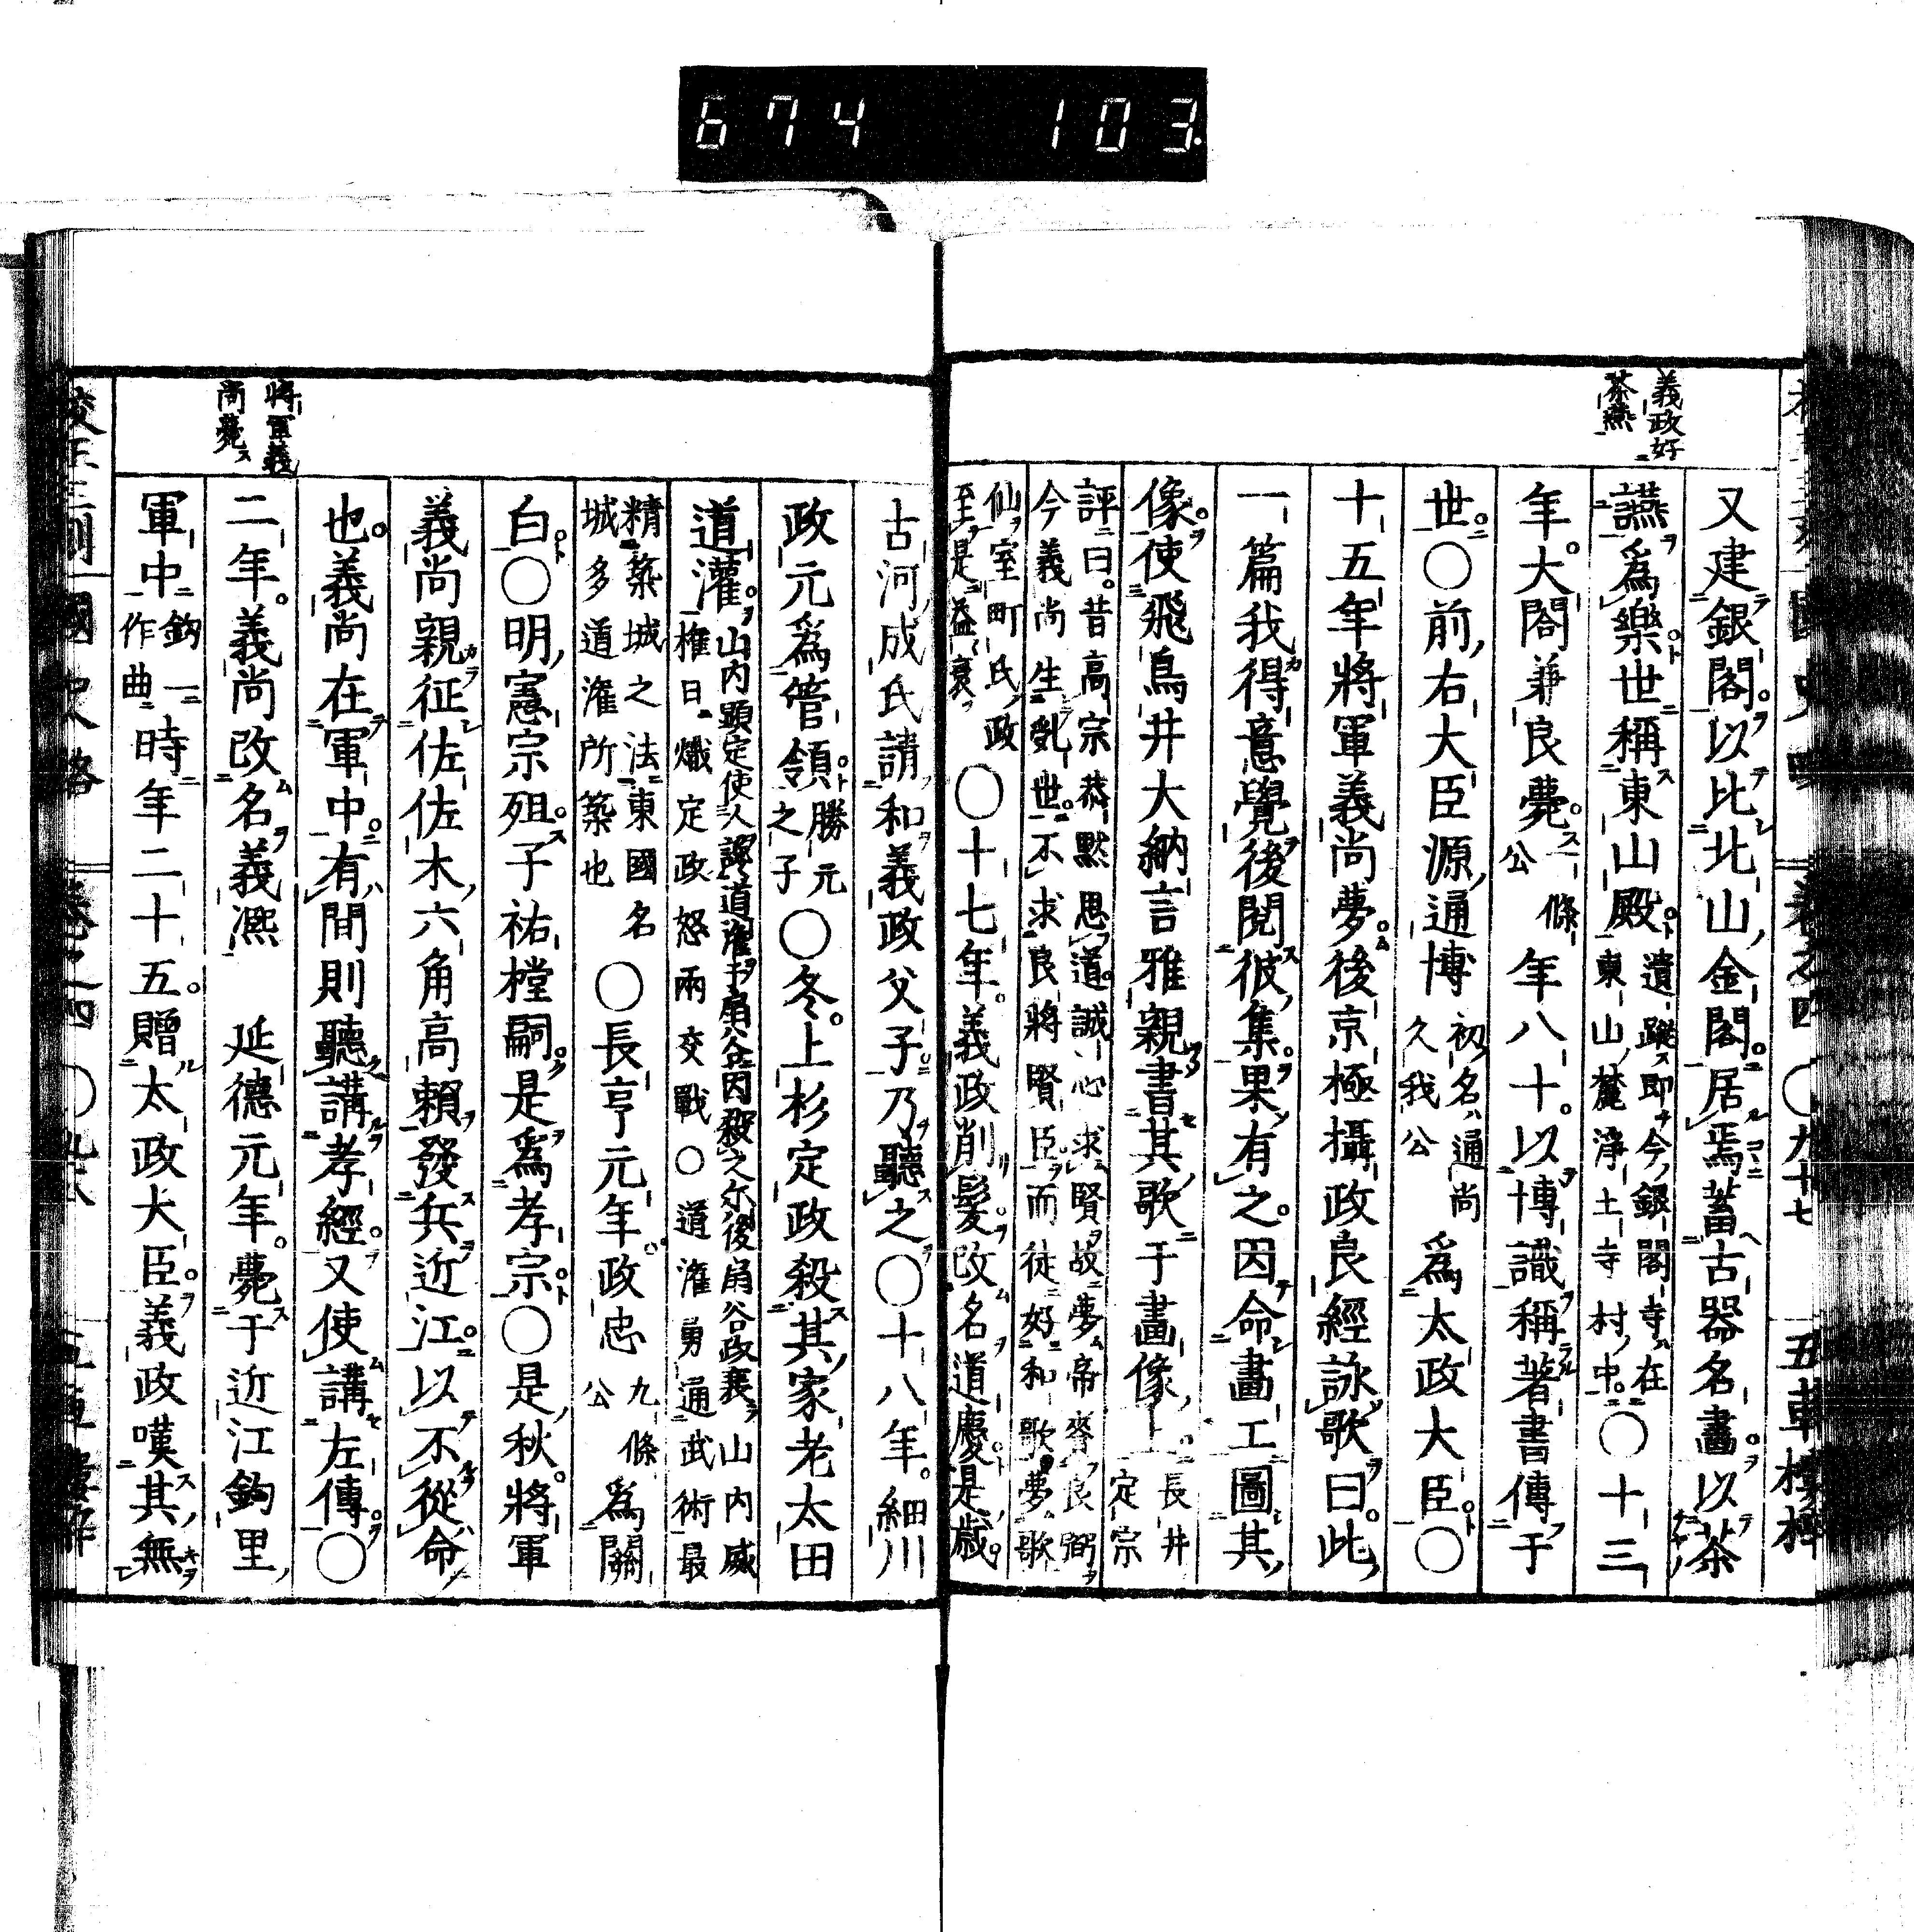 674 103
義政好
茶燕
又建銀閣。以比北山金閣。居焉蓄古器名畫。以茶
讌爲樂世稱東山殿遺蹤即今銀閣寺在
東山麓淨土寺村中○十三
年。大閤兼良薨。一條
公年八十。以博識稱著書傳于
世。○前右大臣源通博初名通尚
久我公爲太政大臣。○
十五年將軍義尚夢後京極攝政良經詠歌曰。此
一篇我得意覺後閲彼集。果有之。因命畫工圖其
像。使飛鳥井大納言雅親書其歌于畫像上。長井
定宗
評曰。昔高宗恭默思道。誠心求賢故夢帝賚良弼
今義尚生亂世。不求良將賢臣而徒好和歌。夢歌
仙室町氏政
至是益衰○十七年。義政削髮。改名道慶。是歲
古河成氏請和義政父子乃聽之○十八年。細川
政元爲管領。勝元
之子○冬。上杉定政殺其家老太田
道灌。山内顯定使人讒道灌于扇谷因殺之尔後扇谷政衰山内威
權日熾定政怒兩交戰○道灌勇通武術最
精築城之法東國名
城多道灌所築也○長亨元年。政忠九條
公爲關
白。○明憲宗殂。子祐樘嗣。是爲孝宗。○是秋。將軍
義尚親征佐佐木六角高賴發兵近江。以不從命
也。義尚在軍中。有間則聽講孝經。又使講左傳。○
將軍義
尚薨
二年。義尚改名義凞 延德元年。薨于近江鈎里
軍中鈎一
作曲時年二十五。贈太政大臣。義政嘆其無